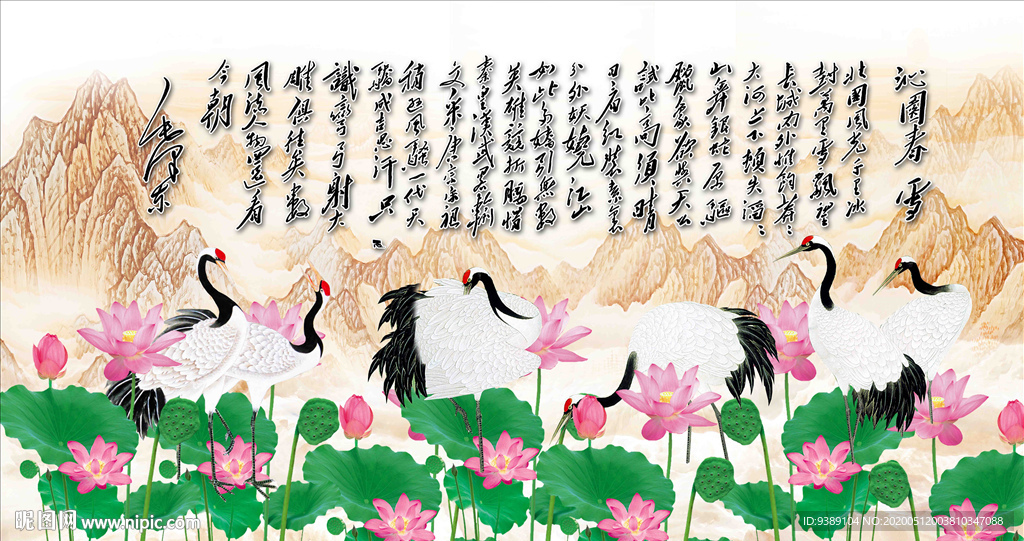 沁園春 雪
北国风光千里冰
封万里雪飘望
长城内外惟余莽々
大河上下顿失滔々
山舞银蛇原驰
腊象欲与天公
试比高须晴
日看红装素裹
分外妖娆江山
如此多娇引无数
英雄竞折腰惜
秦皇汉武略输
文采唐宗宋祖
稍逊风骚一代天
骄成吉思汗只
识弯弓射大
雕俱往矣数
风流人物还看
今朝
毛泽东
昵图网 www.nipic.com
ID:9389104 NO:20200512003810347088